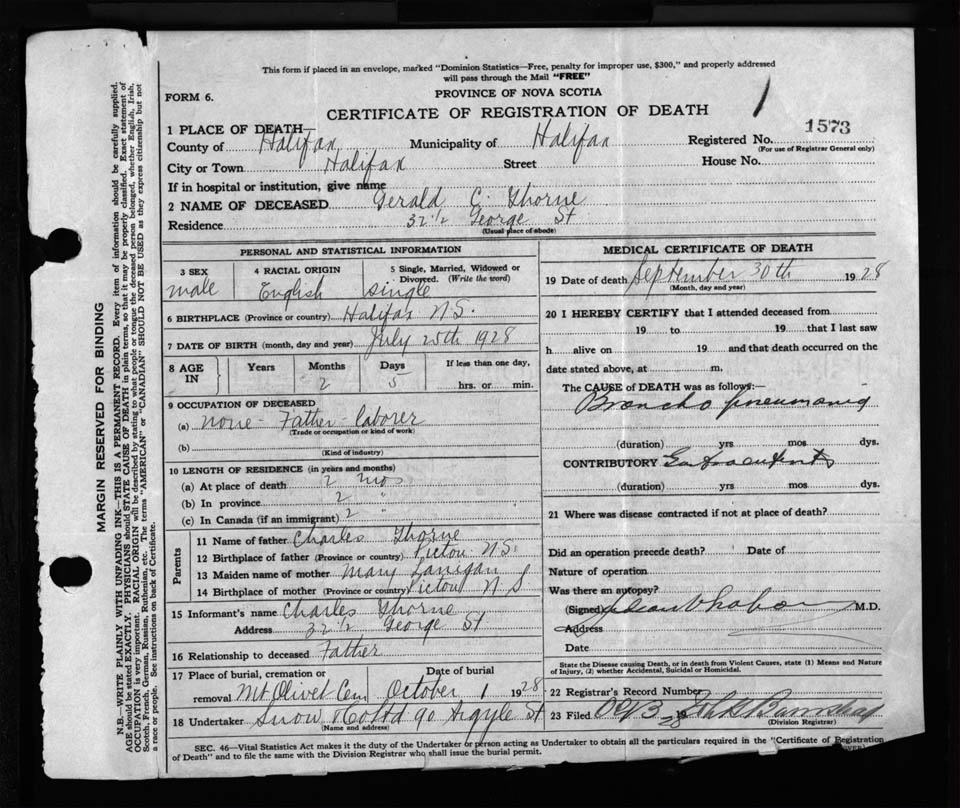 This form if placed in an envelope, marked "Dominion Statistics—Free, penalty for improper use, $300," and properly addressed
will pass through the Mail "FREE"
FORM 6.
PROVINCE OF NOVA SCOTIA
CERTIFICATE OF REGISTRATION OF DEATH
1 PLACE OF DEATH—
Registered No. 1573
(For use of Registrar General only)
County of Halifax Municipality of Halifax
City or Town Halifax Street House No.
If in hospital or institution, give name
2 NAME OF DECEASED Gerald C. Thorne
Residence 32½ George St
(Usual place of abode)
PERSONAL AND STATISTICAL INFORMATION
3 SEX 4 RACIAL ORIGIN 5 Single, Married, Widowed or
Divorced. (Write the word)
male English single
6 BIRTHPLACE (Province or country) Halifax N.S.
7 DATE OF BIRTH (month, day and year) July 25th 1928
8 AGE IN Years Months Days If less than one day,
2 5 hrs. or min.
9 OCCUPATION OF DECEASED
(a) none - Father - laborer
(Trade or occupation or kind of work)
(b)
(Kind of industry)
10 LENGTH OF RESIDENCE (in years and months)
(a) At place of death 2 mos
(b) In province 2 "
(c) In Canada (if an immigrant) 2 "
Parents
11 Name of father Charles Thorne
12 Birthplace of father (Province or country) Pictou N.S.
13 Maiden name of mother Mary Lanigan
14 Birthplace of mother (Province or country) Pictou N S
15 Informant's name Charles Thorne
Address 32½ George St
16 Relationship to deceased Father
17 Place of burial, cremation or Date of burial
removal Mt Olivet Cem October 1 1928
18 Undertaker Snow & Co Ltd 90 Argyle St
(Name and address)
MEDICAL CERTIFICATE OF DEATH
19 Date of death September 30th 1928
(Month, day and year)
20 I HEREBY CERTIFY that I attended deceased from
19 to 19 that I last saw
h alive on 19 and that death occurred on the
date stated above, at m.
The CAUSE of DEATH was as follows:—
Broncho pneumonia
(duration) yrs mos dys.
CONTRIBUTORY
(duration) yrs mos dys.
21 Where was disease contracted if not at place of death?
Did an operation precede death? Date of
Nature of operation
Was there an autopsy?
(Signed) M.D.
Address
Date
State the Disease causing Death, or in death from Violent Causes, state (1) Means and Nature
of Injury, (2) whether Accidental, Suicidal or Homicidal.
22 Registrar's Record Number
23 Filed Oct 3 1928
(Division Registrar)
SEC. 46—Vital Statistics Act makes it the duty of the Undertaker or person acting as Undertaker to obtain all the particulars required in the "Certificate of Registration
of Death" and to file the same with the Division Registrar who shall issue the burial permit.
OVER)
MARGIN RESERVED FOR BINDING
N.B.—WRITE PLAINLY WITH UNFADING INK—THIS IS A PERMANENT RECORD. Every item of information should be carefully supplied.
AGE should be stated EXACTLY. PHYSICIANS should STATE CAUSE OF DEATH in plain terms, so that it may be properly classified. Exact statement of
OCCUPATION is very important. RACIAL ORIGIN will be described by stating to what people or tongue the deceased person belonged, whether English, Irish,
Scotch, French, German, Russian, Ruthenian, etc. The terms "AMERICAN" or "CANADIAN" SHOULD NOT BE USED as they express citizenship but not
a race or people. See instructions on back of Certificate.